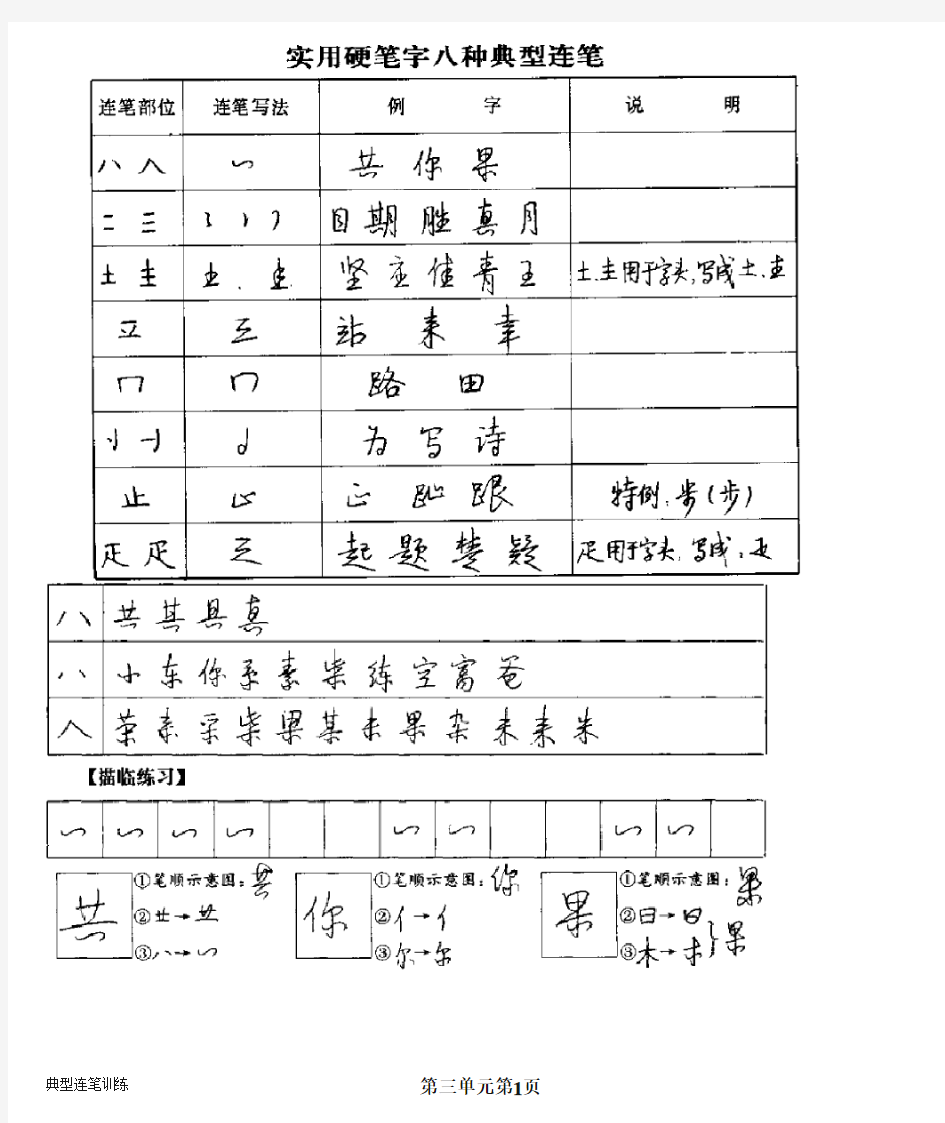 实用硬笔字八种典型连笔
连笔部位 连笔写法 例 字 说 明
八 人 共 你 果
二 三 目 期 胜 真 月
土 圭 坚 应 佳 青 王 土、圭用于字头,写成土、圭
立 站 来 幸
冂 路 田
为 写 诗
止 正 趾 跟 特例:步(步)
疋 起 题 楚 疑 疋用于字头,写成:
八 共 其 具 真
八 小 东 你 系 素 柴 练 空 富 爸
人 荣 素 采 柴 梁 某 未 果 杂 来 耒 米
【描临练习】
共 ①笔顺示意图:共 你 ①笔顺示意图:你 果 ①笔顺示意图:果
② → ②亻→亻 ②日→日 果
③八→ ③尔→尔 ③木→木
典型连笔训练 第三单元第1页